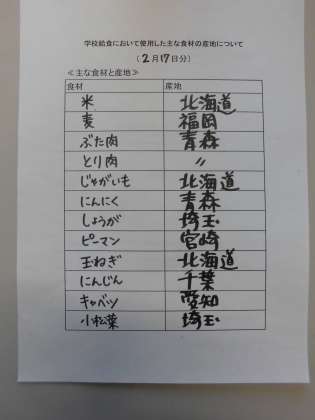 学校給食において使用した主な食材の産地について
(2月17日分)
＜主な食材と産地＞
食材 産地
米 北海道
麦 福岡
ぶた肉 青森
とり肉 〃
じゃがいも 北海道
にんにく 青森
しょうが 埼玉
ピーマン 宮崎
玉ねぎ 北海道
にんじん 千葉
キャベツ 愛知
小松菜 埼玉